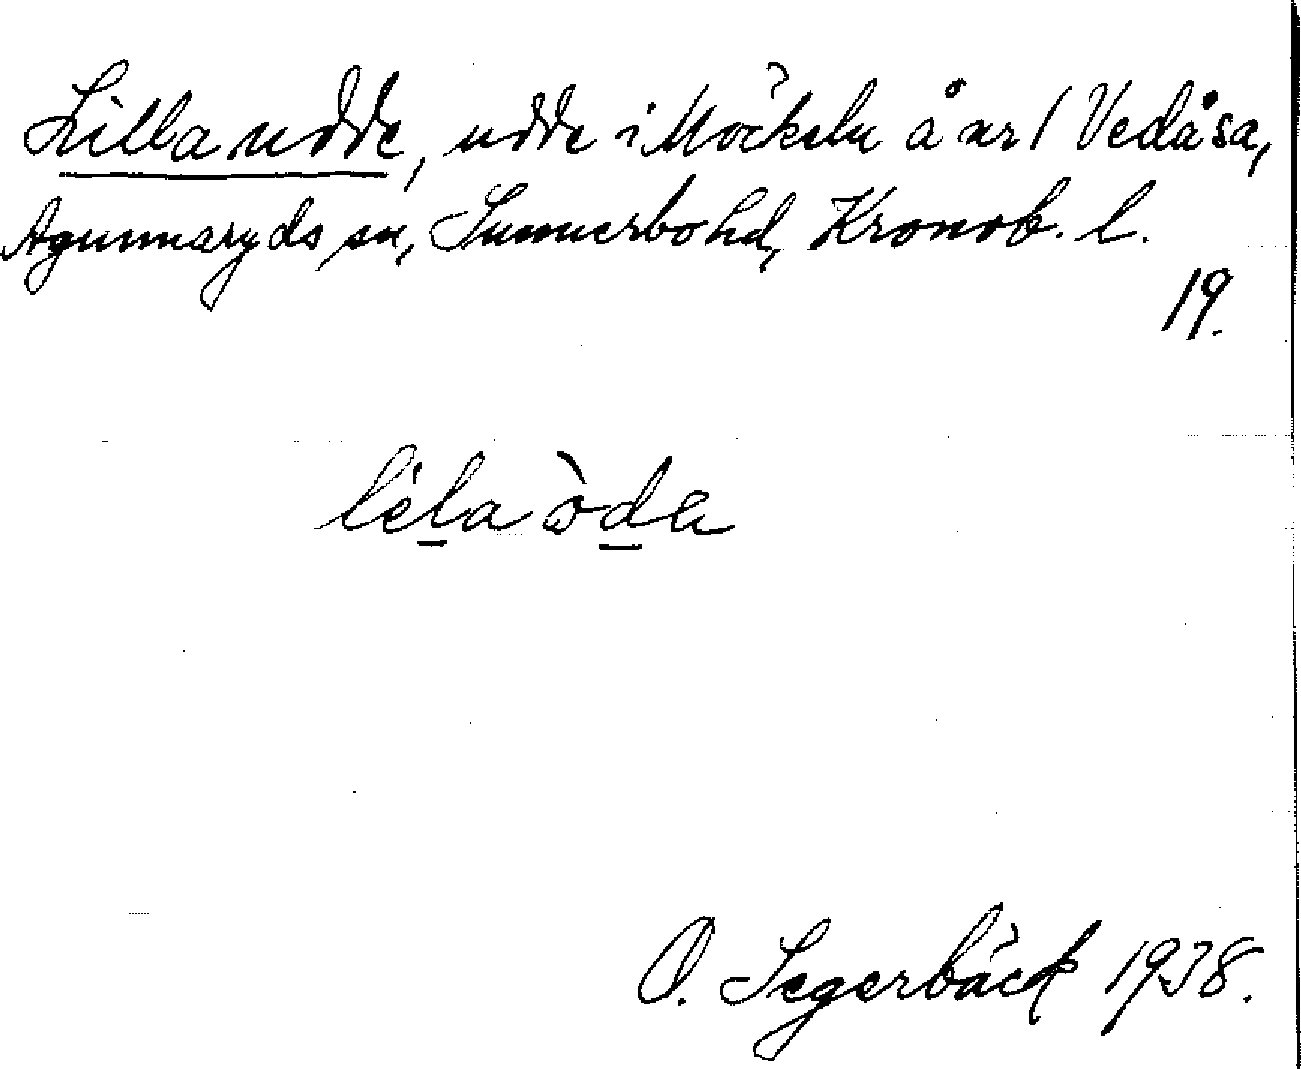 Lilla udde, udde i Möckeln å nr 1 Vedåsa,
Agunnaryds sn, Sunnerbo hd, Kronob. l.
19.
léla òda
O. Segerbäck 1938.